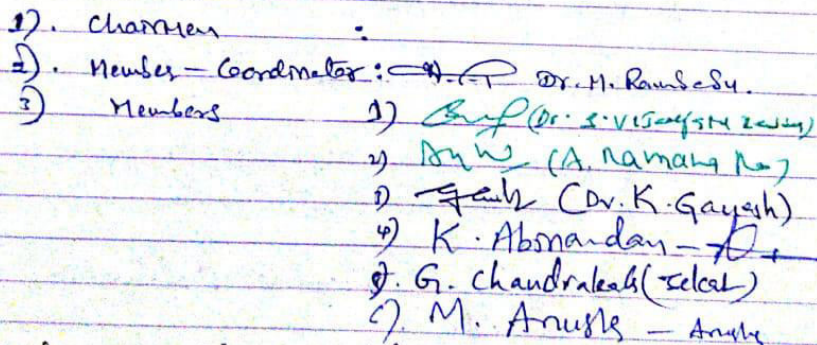 1). Chairmen :
2). Member - Coordinator : Dr. M. Rambabu.
3) Members
1) (Dr. S.
2) (A. Ramana Rao)
3) (Dr. K. Gayash)
4) K. Abinandan -
5). G. Chandrakals
6). M. Anusha - Anusha